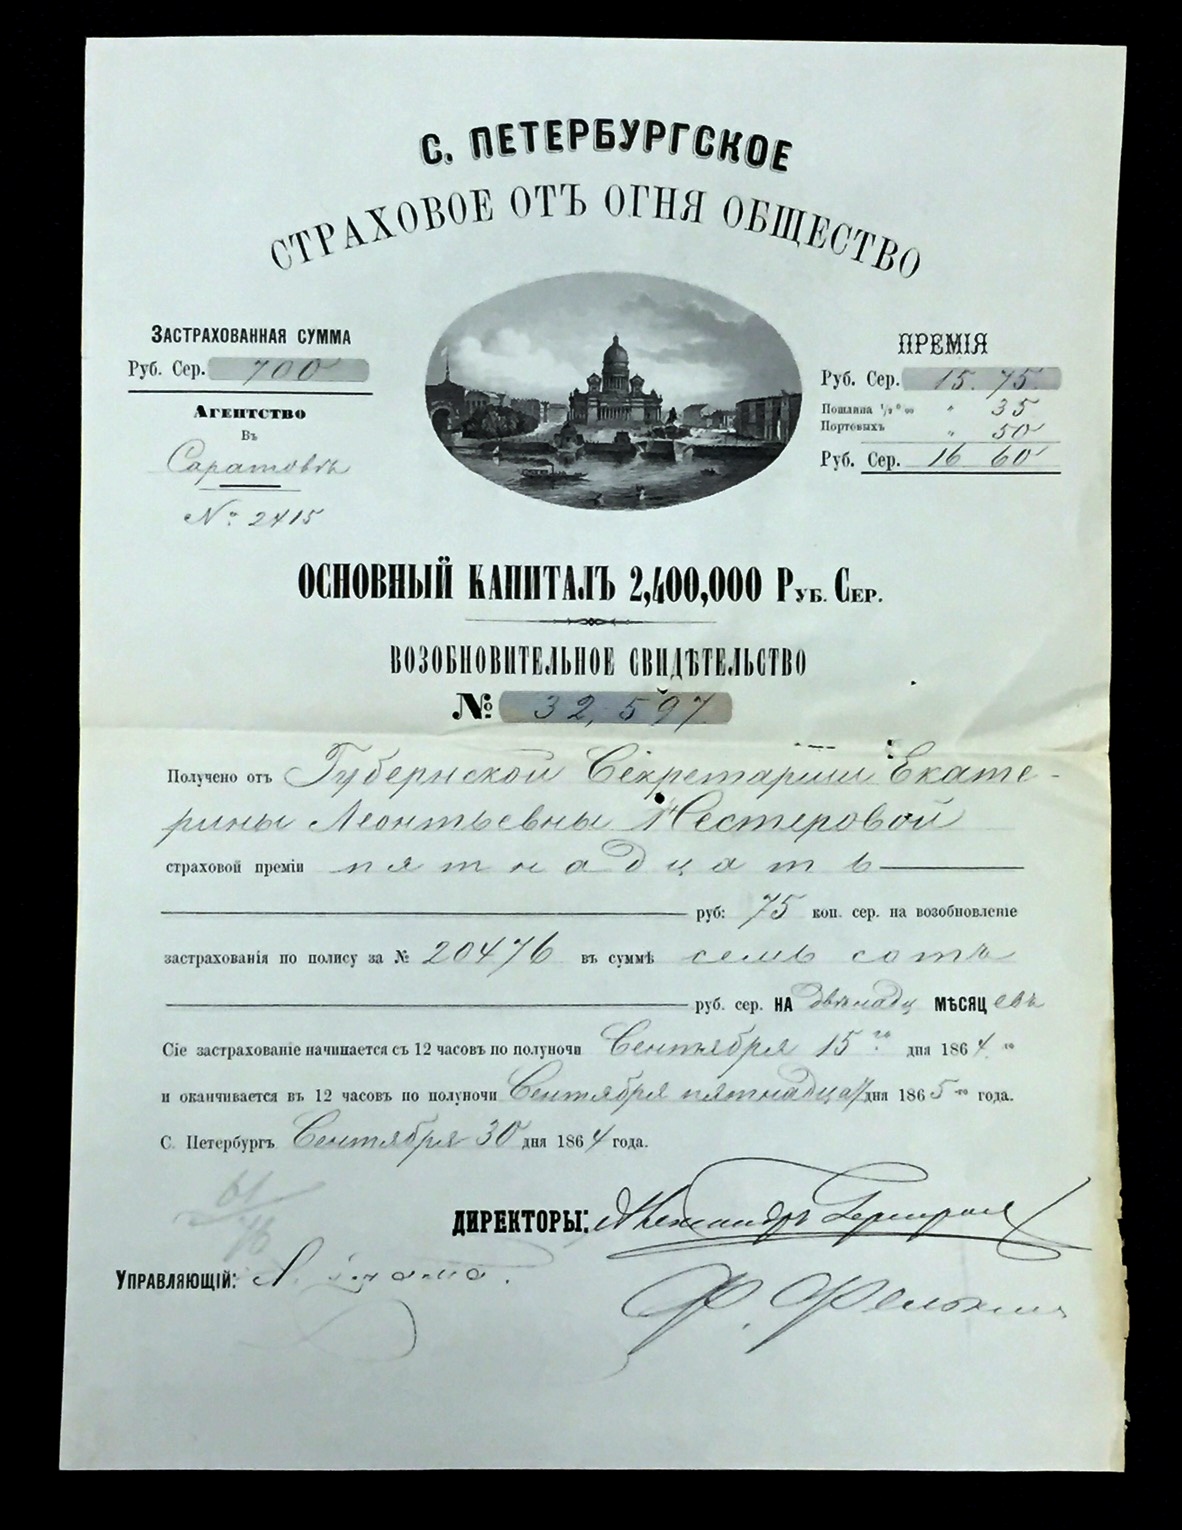 С. ПЕТЕРБУРГСКОЕ
СТРАХОВОЕ ОТЪ ОГНЯ ОБЩЕСТВО
ЗАСТРАХОВАННАЯ СУММА
Руб. Сер. 700
АГЕНТСТВО
Въ
Саратовѣ
№ 2415
ПРЕМІЯ
Руб. Сер. 15. 75.
Пошлина 1/2 % " 35
Портовыхъ " 50
Руб. Сер. 16 60
ОСНОВНЫЙ КАПИТАЛЪ 2,400,000 РУБ. СЕР.
ВОЗОБНОВИТЕЛЬНОЕ СВИДѢТЕЛЬСТВО
№ 32,597
Получено отъ Губернской Секретарши Екате-
рины Леонтьевны Нестеровой
страховой преміи пятнадцать
руб: 75 коп. сер. на возобновленіе
застрахованія по полису за № 20476 въ суммѣ семь сотъ
руб. сер. НА двѣнадц МѢСЯЦевъ
Сіе застрахованіе начинается съ 12 часовъ по полуночи Сентября 15го дня 1864го
и оканчивается въ 12 часовъ по полуночи Сентября пятнадца дня 1865го года.
С. Петербургъ Сентября 30 дня 1864 года.
61
76
ДИРЕКТОРЫ: Александръ
УПРАВЛЯЮЩІЙ:
Ф.